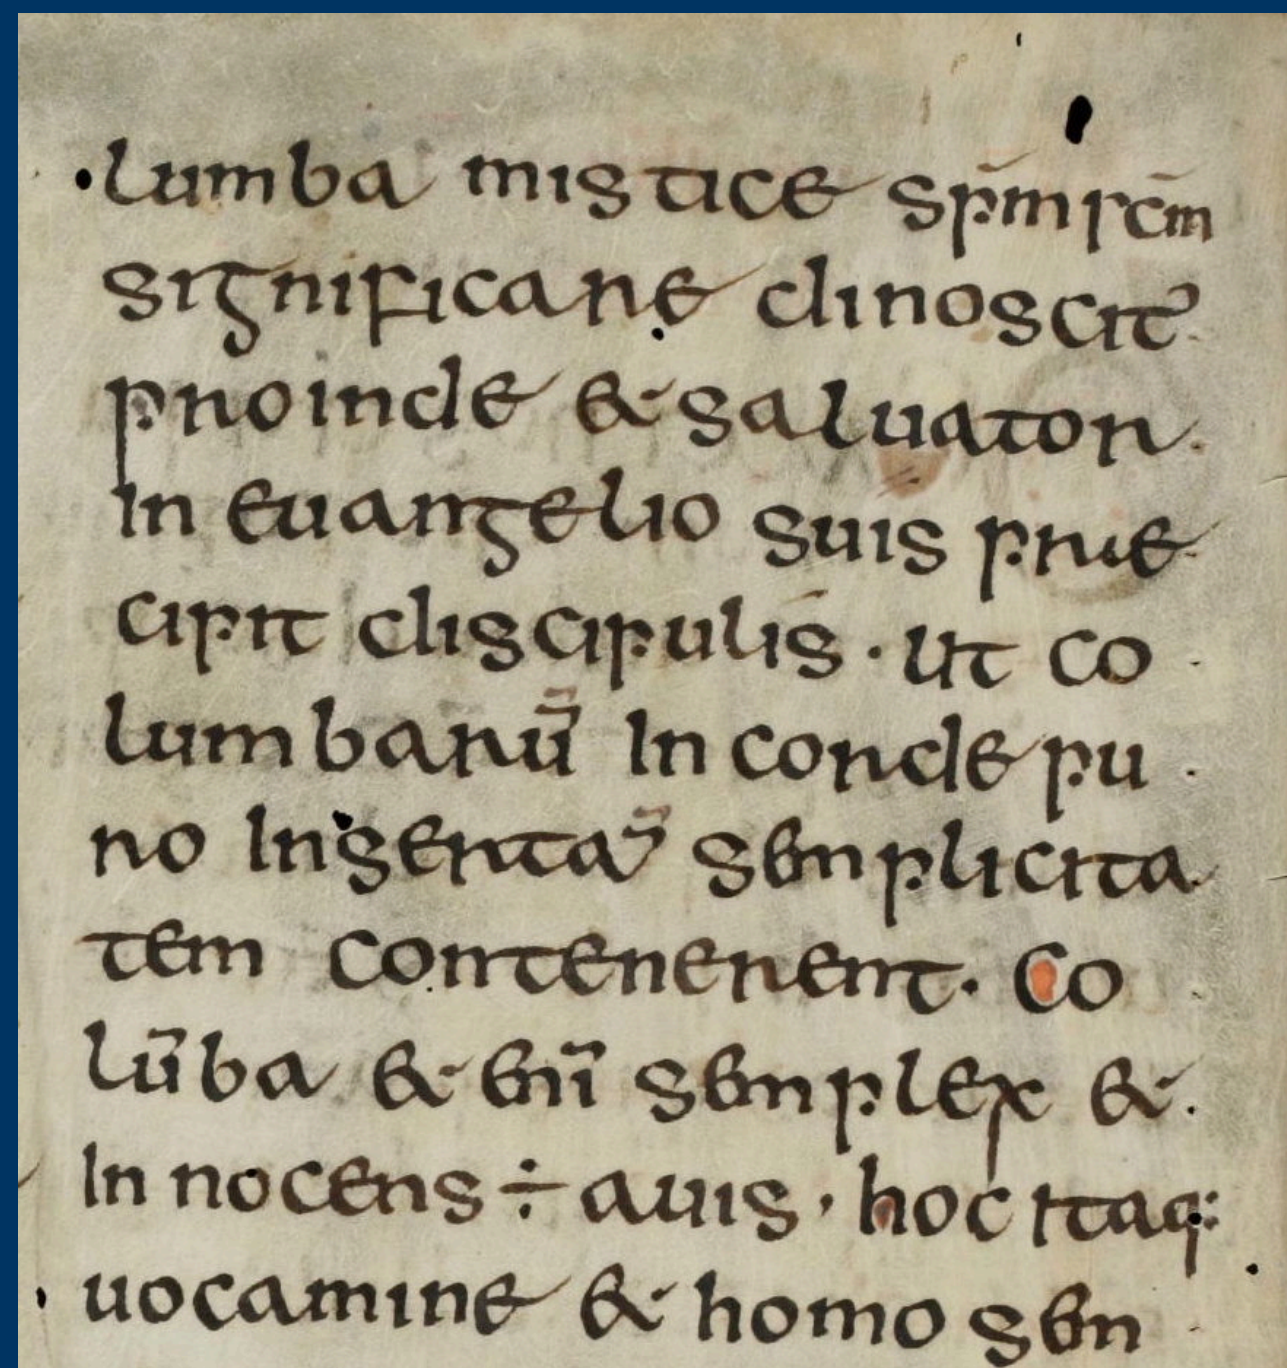 lumba mistice sp̄m sc̄m
significare dinoscit᾽
proinde & saluator
in euangelio suis prae
cipit discipulis · ut co
lumbarū in corde pu
ro insertā simplicita
tem contenerent · Co
lūba & enī simplex &
innocens ÷ auis · hoc itaq:
uocamine & homo sim